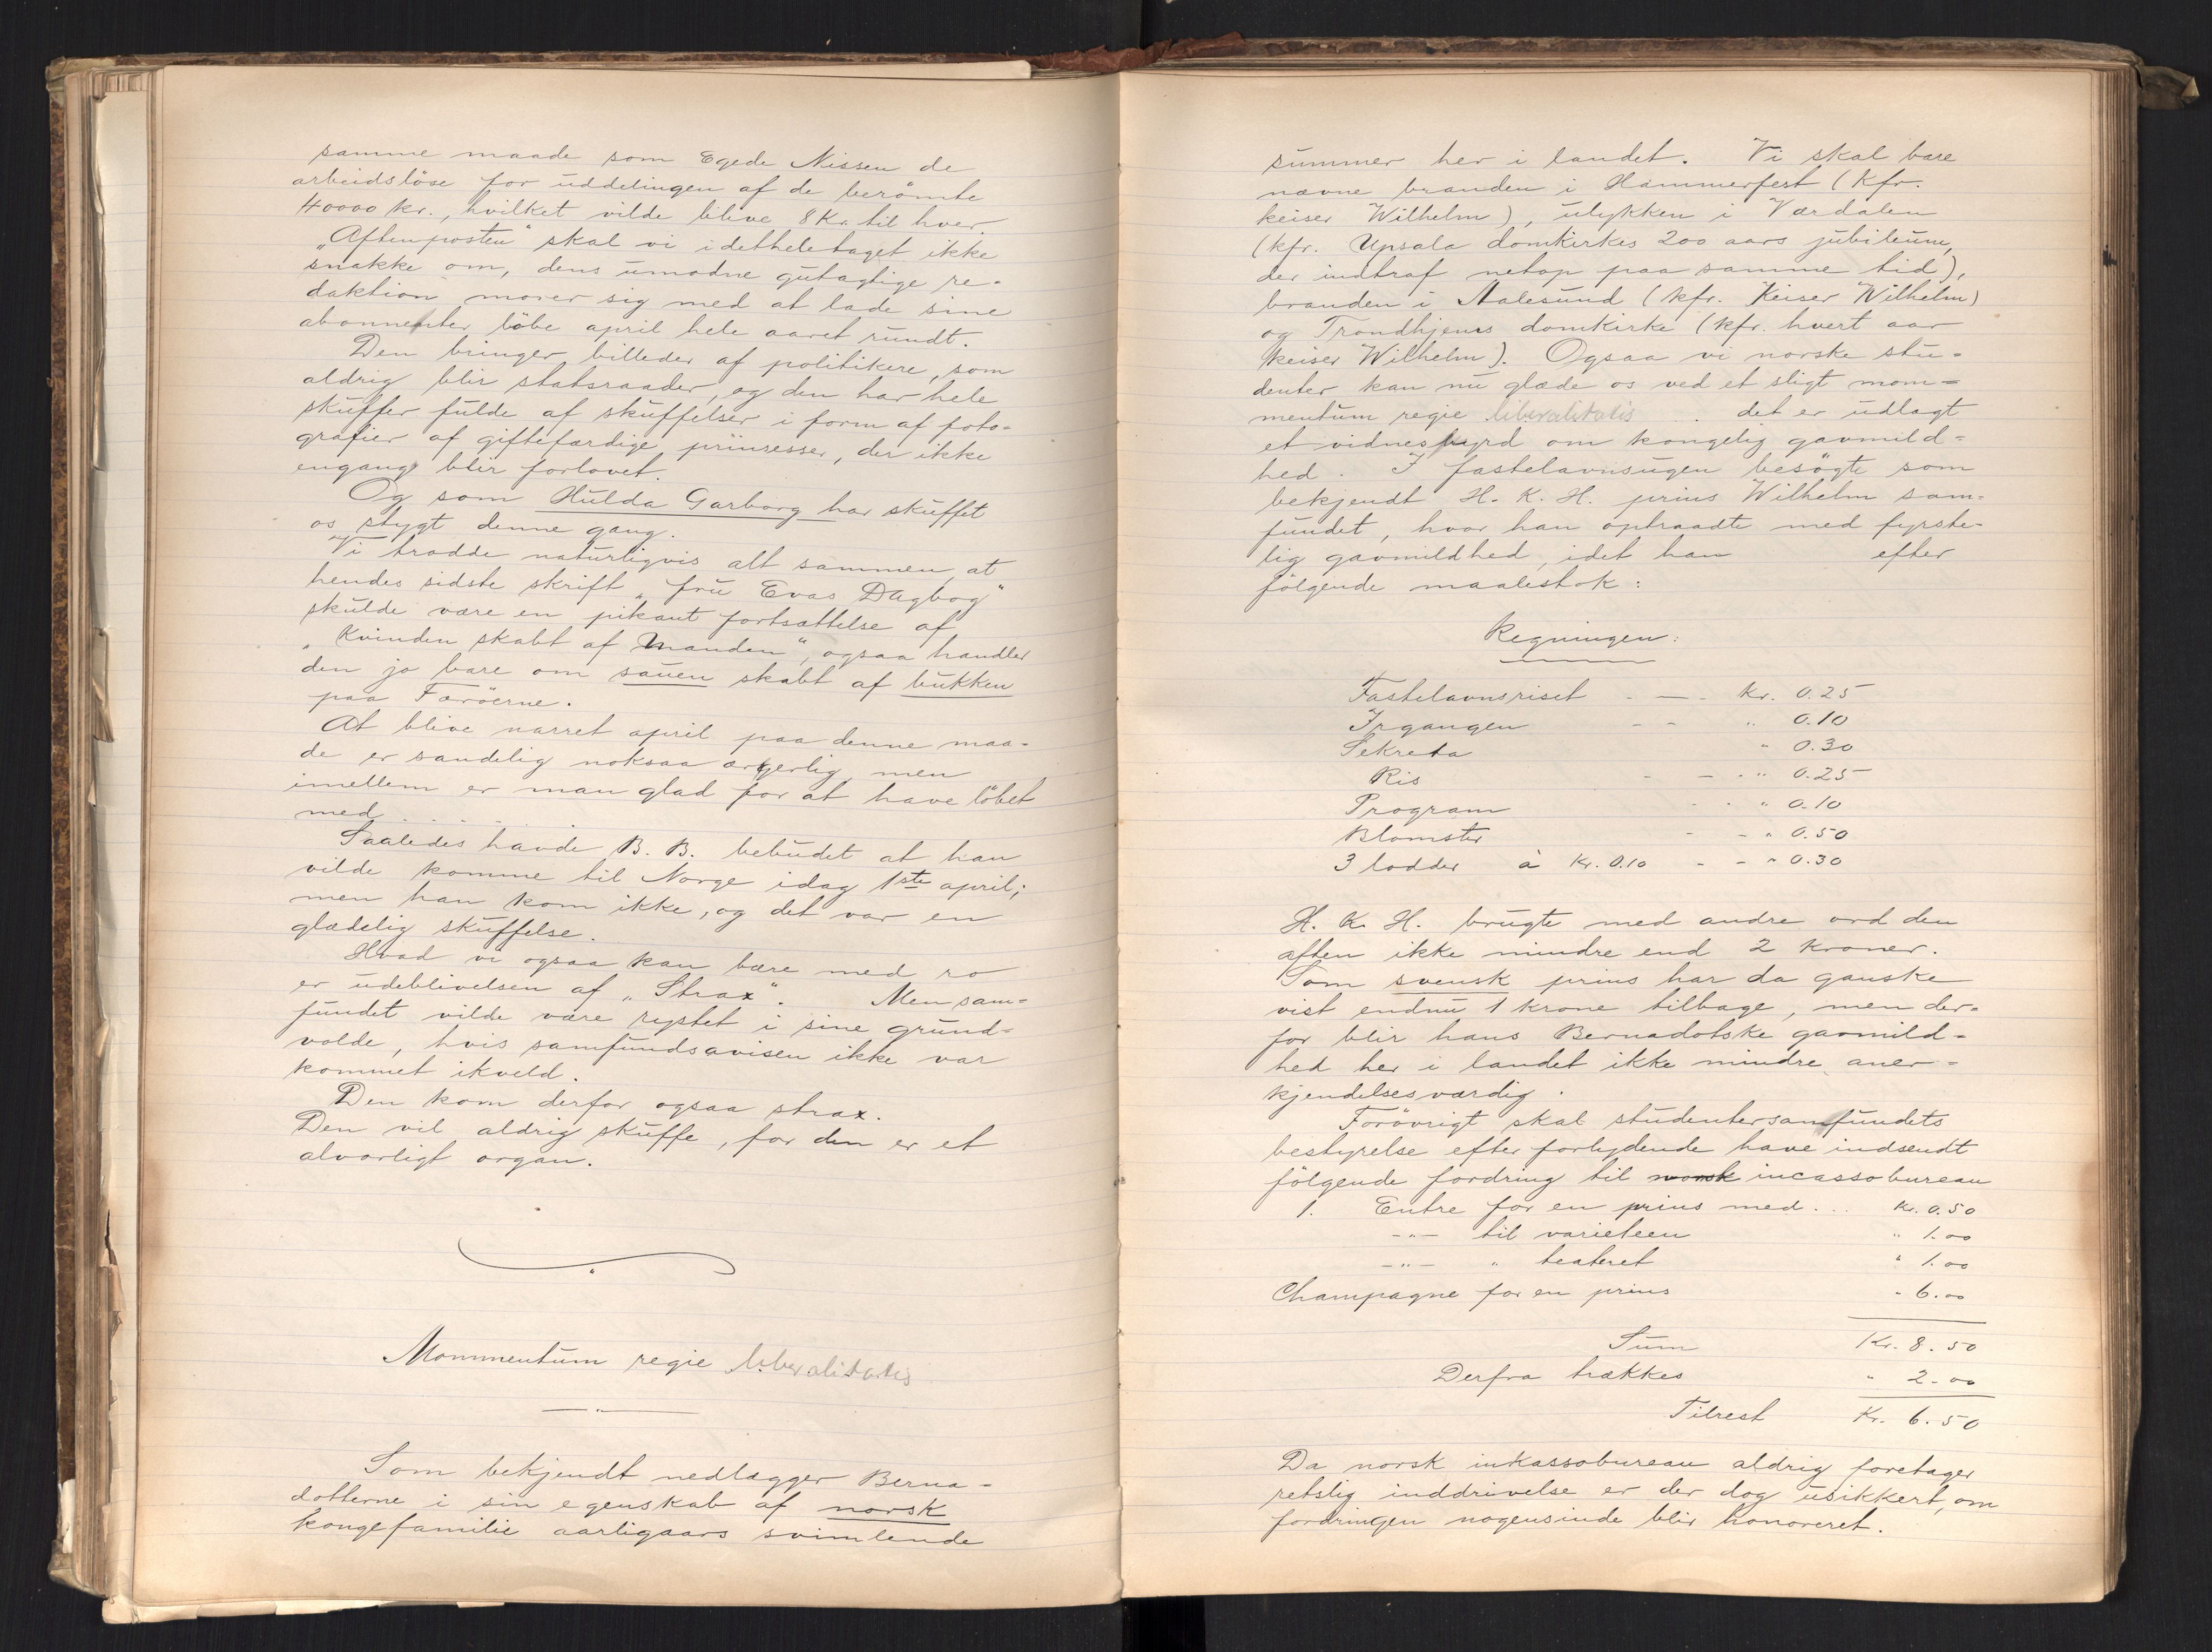 samme maade som Egede Nissen de
arbeidsløse for uddelingen af de berömte
40000 kr., hvilket vilde blive 8 Kr. til hver.
„Aftenposten" skal vi i detheletaget ikke
snakke om, dens umodne gutagtige re-
daktion morer sig med at lade sine
abonnenter løbe april hele aaret rundt.
Den bringer billeder af politikere, som
aldrig blir statsraader, og den har hele
skuffer fulde af skuffelser i form af foto-
grafier af giftefærdige prinsesser, der ikke
engang blir forlovet.
Og som Hulda Garborg har skuffet
os stygt denne gang.
Vi trodde naturligvis alt sammen, at
hendes sidste skrift „fru Evas Dagbog"
skulde være en pikant fortsættelse af
„Kvinden skabt af Manden", ogsaa handler
den jo bare om sauen skabt af bukken
paa Færöerne.
At blive narret april paa denne maa-
de er sandelig noksaa ærgerlig, men
imellem er man glad for at have löbet
med . . . .
Saaledes havde B. B. bebudet at han
vilde komme til Norge idag 1ste april;
men han kom ikke, og det var en
glædelig skuffelse.
Hvad vi ogsaa kan bære med ro
er udeblivelsen af „Strax". Men sam-
fundet vilde være rystet i sine grund-
volde, hvis samfundsavisen ikke var
kommet ikveld.
Den kom derfor ogsaa strax.
Den vil aldrig skuffe, for den er et
alvorligt organ.
Mommentum regie liberalitatis
Som bekjendt nedlægger Berna-
dotterne i sin egenskab af norsk
kongefamilie aarligaars svimlende
summer her i landet. Vi skal bare
nævne branden i Hammerfest (kfr.
keiser Wilhelm), ulykken i Værdalen
(kfr. Upsala domkirkes 200 aars jubileum,
der indtraf netop paa samme tid),
branden i Aalesund (kfr. Keiser Wilhelm)
og Trondhjems domkirke (kfr. hvert aar
keiser Wilhelm). Ogsaa vi norske stu-
denter kan nu glæde os ved et sligt mom-
mentum regie liberalitatis . . det er udlagt
et vidnesbyrd om kongelig gavmild-
hed. I fastelavnsugen besögte som
bekjendt H. K. H. prins Wilhelm sam-
fundet, hvor han optraadte med fyrste-
lig gavmildhed, idet han efter
følgende maalestok:
Regningen:
Fastelavnsriset - — - Kr. 0.25
Irgangen - - " 0.10
Sekreta " 0.30
Ris - - - " 0.25
Program - - " 0.10
Blomster - - " 0.50
3 lodder à Kr. 0.10 - - " 0.30
H. K. H. brugte med andre ord den
aften ikke mindre end 2 kroner.
Som svensk prins har da ganske
vist endnu 1 krone tilbage, men der-
for blir hans Bernadotske gavmild-
hed her i landet ikke mindre aner-
kjendelsesværdig.
Forövrigt skal studentersamfundets
bestyrelse efter forlydende have indsendt
følgende fordring til norsk incassobureau
1. Entre for en prins med... Kr. 0.50
-"- til varieteen " 1.00
-"- " teateret " 1.00
Champagne for en prins " 6.00
Sum Kr. 8.50
Derfra trækkes " 2.00
Tilrest Kr. 6.50
Da norsk inkassobureau aldrig foretager
retslig inddrivelse er der dog usikkert, om
fordringen nogensinde blir honoreret.